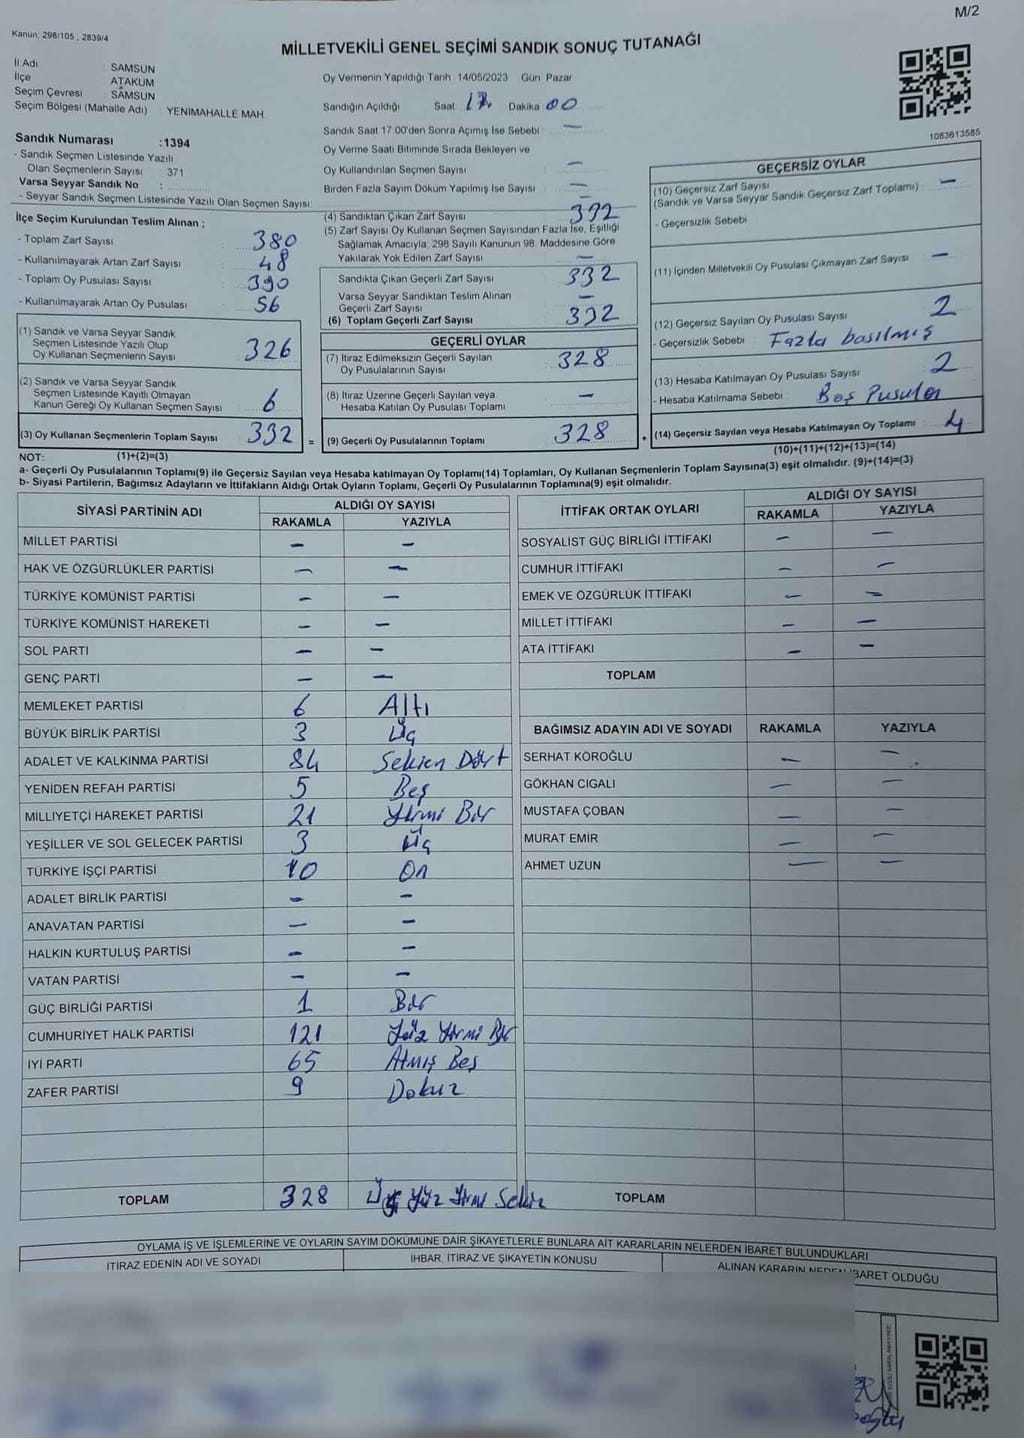 M/2
Kanun, 298/105 , 2839/4
MİLLETVEKİLİ GENEL SEÇİMİ SANDIK SONUÇ TUTANAĞI
İl Adı : SAMSUN
İlçe : ATAKUM
Seçim Çevresi : SAMSUN
Seçim Bölgesi (Mahalle Adı) YENİMAHALLE MAH.
Sandık Numarası :1394
- Sandık Seçmen Listesinde Yazılı
Olan Seçmenlerin Sayısı : 371
Varsa Seyyar Sandık No :
- Seyyar Sandık Seçmen Listesinde Yazılı Olan Seçmen Sayısı:
Oy Vermenin Yapıldığı Tarih 14/05/2023 Gün Pazar
Sandığın Açıldığı Saat 17 Dakika 00
Sandık Saat 17:00'den Sonra Açımış İse Sebebi : —
Oy Verme Saati Bitiminde Sırada Bekleyen ve
Oy Kullandırılan Seçmen Sayısı —
Birden Fazla Sayım Döküm Yapılmış İse Sayısı —
1083613585
İlçe Seçim Kurulundan Teslim Alınan ;
- Toplam Zarf Sayısı 380
- Kullanılmayarak Artan Zarf Sayısı 48
- Toplam Oy Pusulası Sayısı 390
- Kullanılmayarak Artan Oy Pusulası 56
(1) Sandık ve Varsa Seyyar Sandık
Seçmen Listesinde Yazılı Olup
Oy Kullanan Seçmenlerin Sayısı 326
(2) Sandık ve Varsa Seyyar Sandık
Seçmen Listesinde Kayıtlı Olmayan
Kanun Gereği Oy Kullanan Seçmen Sayısı 6
(3) Oy Kullanan Seçmenlerin Toplam Sayısı 332 =
(1)+(2)=(3)
(4) Sandıktan Çıkan Zarf Sayısı 332
(5) Zarf Sayısı Oy Kullanan Seçmen Sayısından Fazla İse, Eşitliği
Sağlamak Amacıyla, 298 Sayılı Kanunun 98. Maddesine Göre
Yakılarak Yok Edilen Zarf Sayısı —
Sandıkta Çıkan Geçerli Zarf Sayısı 332
Varsa Seyyar Sandıktan Teslim Alınan
Geçerli Zarf Sayısı —
(6) Toplam Geçerli Zarf Sayısı 332
GEÇERLİ OYLAR
(7) İtiraz Edilmeksizin Geçerli Sayılan
Oy Pusulalarının Sayısı 328
(8) İtiraz Üzerine Geçerli Sayılan veya
Hesaba Katılan Oy Pusulası Toplamı —
(9) Geçerli Oy Pusulalarının Toplamı 328 +
GEÇERSİZ OYLAR
(10) Geçersiz Zarf Sayısı —
(Sandık ve Varsa Seyyar Sandık Geçersiz Zarf Toplamı)
- Geçersizlik Sebebi :
(11) İçinden Milletvekili Oy Pusulası Çıkmayan Zarf Sayısı —
(12) Geçersiz Sayılan Oy Pusulası Sayısı 2
- Geçersizlik Sebebi : Fazla basılmış
(13) Hesaba Katılmayan Oy Pusulası Sayısı 2
- Hesaba Katılmama Sebebi : Boş Pusula
(14) Geçersiz Sayılan veya Hesaba Katılmayan Oy Toplamı 4
(10)+(11)+(12)+(13)=(14)
NOT:
a- Geçerli Oy Pusulalarının Toplamı(9) ile Geçersiz Sayılan veya Hesaba katılmayan Oy Toplamı(14) Toplamları, Oy Kullanan Seçmenlerin Toplam Sayısına(3) eşit olmalıdır. (9)+(14)=(3)
b- Siyasi Partilerin, Bağımsız Adayların ve İttifakların Aldığı Ortak Oyların Toplamı, Geçerli Oy Pusulalarının Toplamına(9) eşit olmalıdır.
SİYASİ PARTİNİN ADI ALDIĞI OY SAYISI
RAKAMLA YAZIYLA
MİLLET PARTİSİ — —
HAK VE ÖZGÜRLÜKLER PARTİSİ — —
TÜRKİYE KOMÜNİST PARTİSİ — —
TÜRKİYE KOMÜNİST HAREKETİ — —
SOL PARTİ — —
GENÇ PARTİ — —
MEMLEKET PARTİSİ 6 Altı
BÜYÜK BİRLİK PARTİSİ 3 Üç
ADALET VE KALKINMA PARTİSİ 84 Seksen Dört
YENİDEN REFAH PARTİSİ 5 Beş
MİLLİYETÇİ HAREKET PARTİSİ 21 Yirmi Bir
YEŞİLLER VE SOL GELECEK PARTİSİ 3 Üç
TÜRKİYE İŞÇİ PARTİSİ 10 On
ADALET BİRLİK PARTİSİ — —
ANAVATAN PARTİSİ — —
HALKIN KURTULUŞ PARTİSİ — —
VATAN PARTİSİ — —
GÜÇ BİRLİĞİ PARTİSİ 1 Bir
CUMHURİYET HALK PARTİSİ 121 Yüz Yirmi Bir
İYİ PARTİ 65 Atmış Beş
ZAFER PARTİSİ 9 Dokuz
TOPLAM 328 Üç Yüz Yirmi Sekiz
İTTİFAK ORTAK OYLARI ALDIĞI OY SAYISI
RAKAMLA YAZIYLA
SOSYALİST GÜÇ BİRLİĞİ İTTİFAKI — —
CUMHUR İTTİFAKI — —
EMEK VE ÖZGÜRLÜK İTTİFAKI — —
MİLLET İTTİFAKI — —
ATA İTTİFAKI — —
TOPLAM
BAĞIMSIZ ADAYIN ADI VE SOYADI RAKAMLA YAZIYLA
SERHAT KÖROĞLU — —
GÖKHAN CIGALI — —
MUSTAFA ÇOBAN — —
MURAT EMİR — —
AHMET UZUN — —
TOPLAM
OYLAMA İŞ VE İŞLEMLERİNE VE OYLARIN SAYIM DÖKÜMÜNE DAİR ŞİKAYETLERLE BUNLARA AİT KARARLARIN NELERDEN İBARET BULUNDUKLARI
İTİRAZ EDENİN ADI VE SOYADI İHBAR, İTİRAZ VE ŞİKAYETİN KONUSU ALINAN KARARIN NEDEN İBARET OLDUĞU